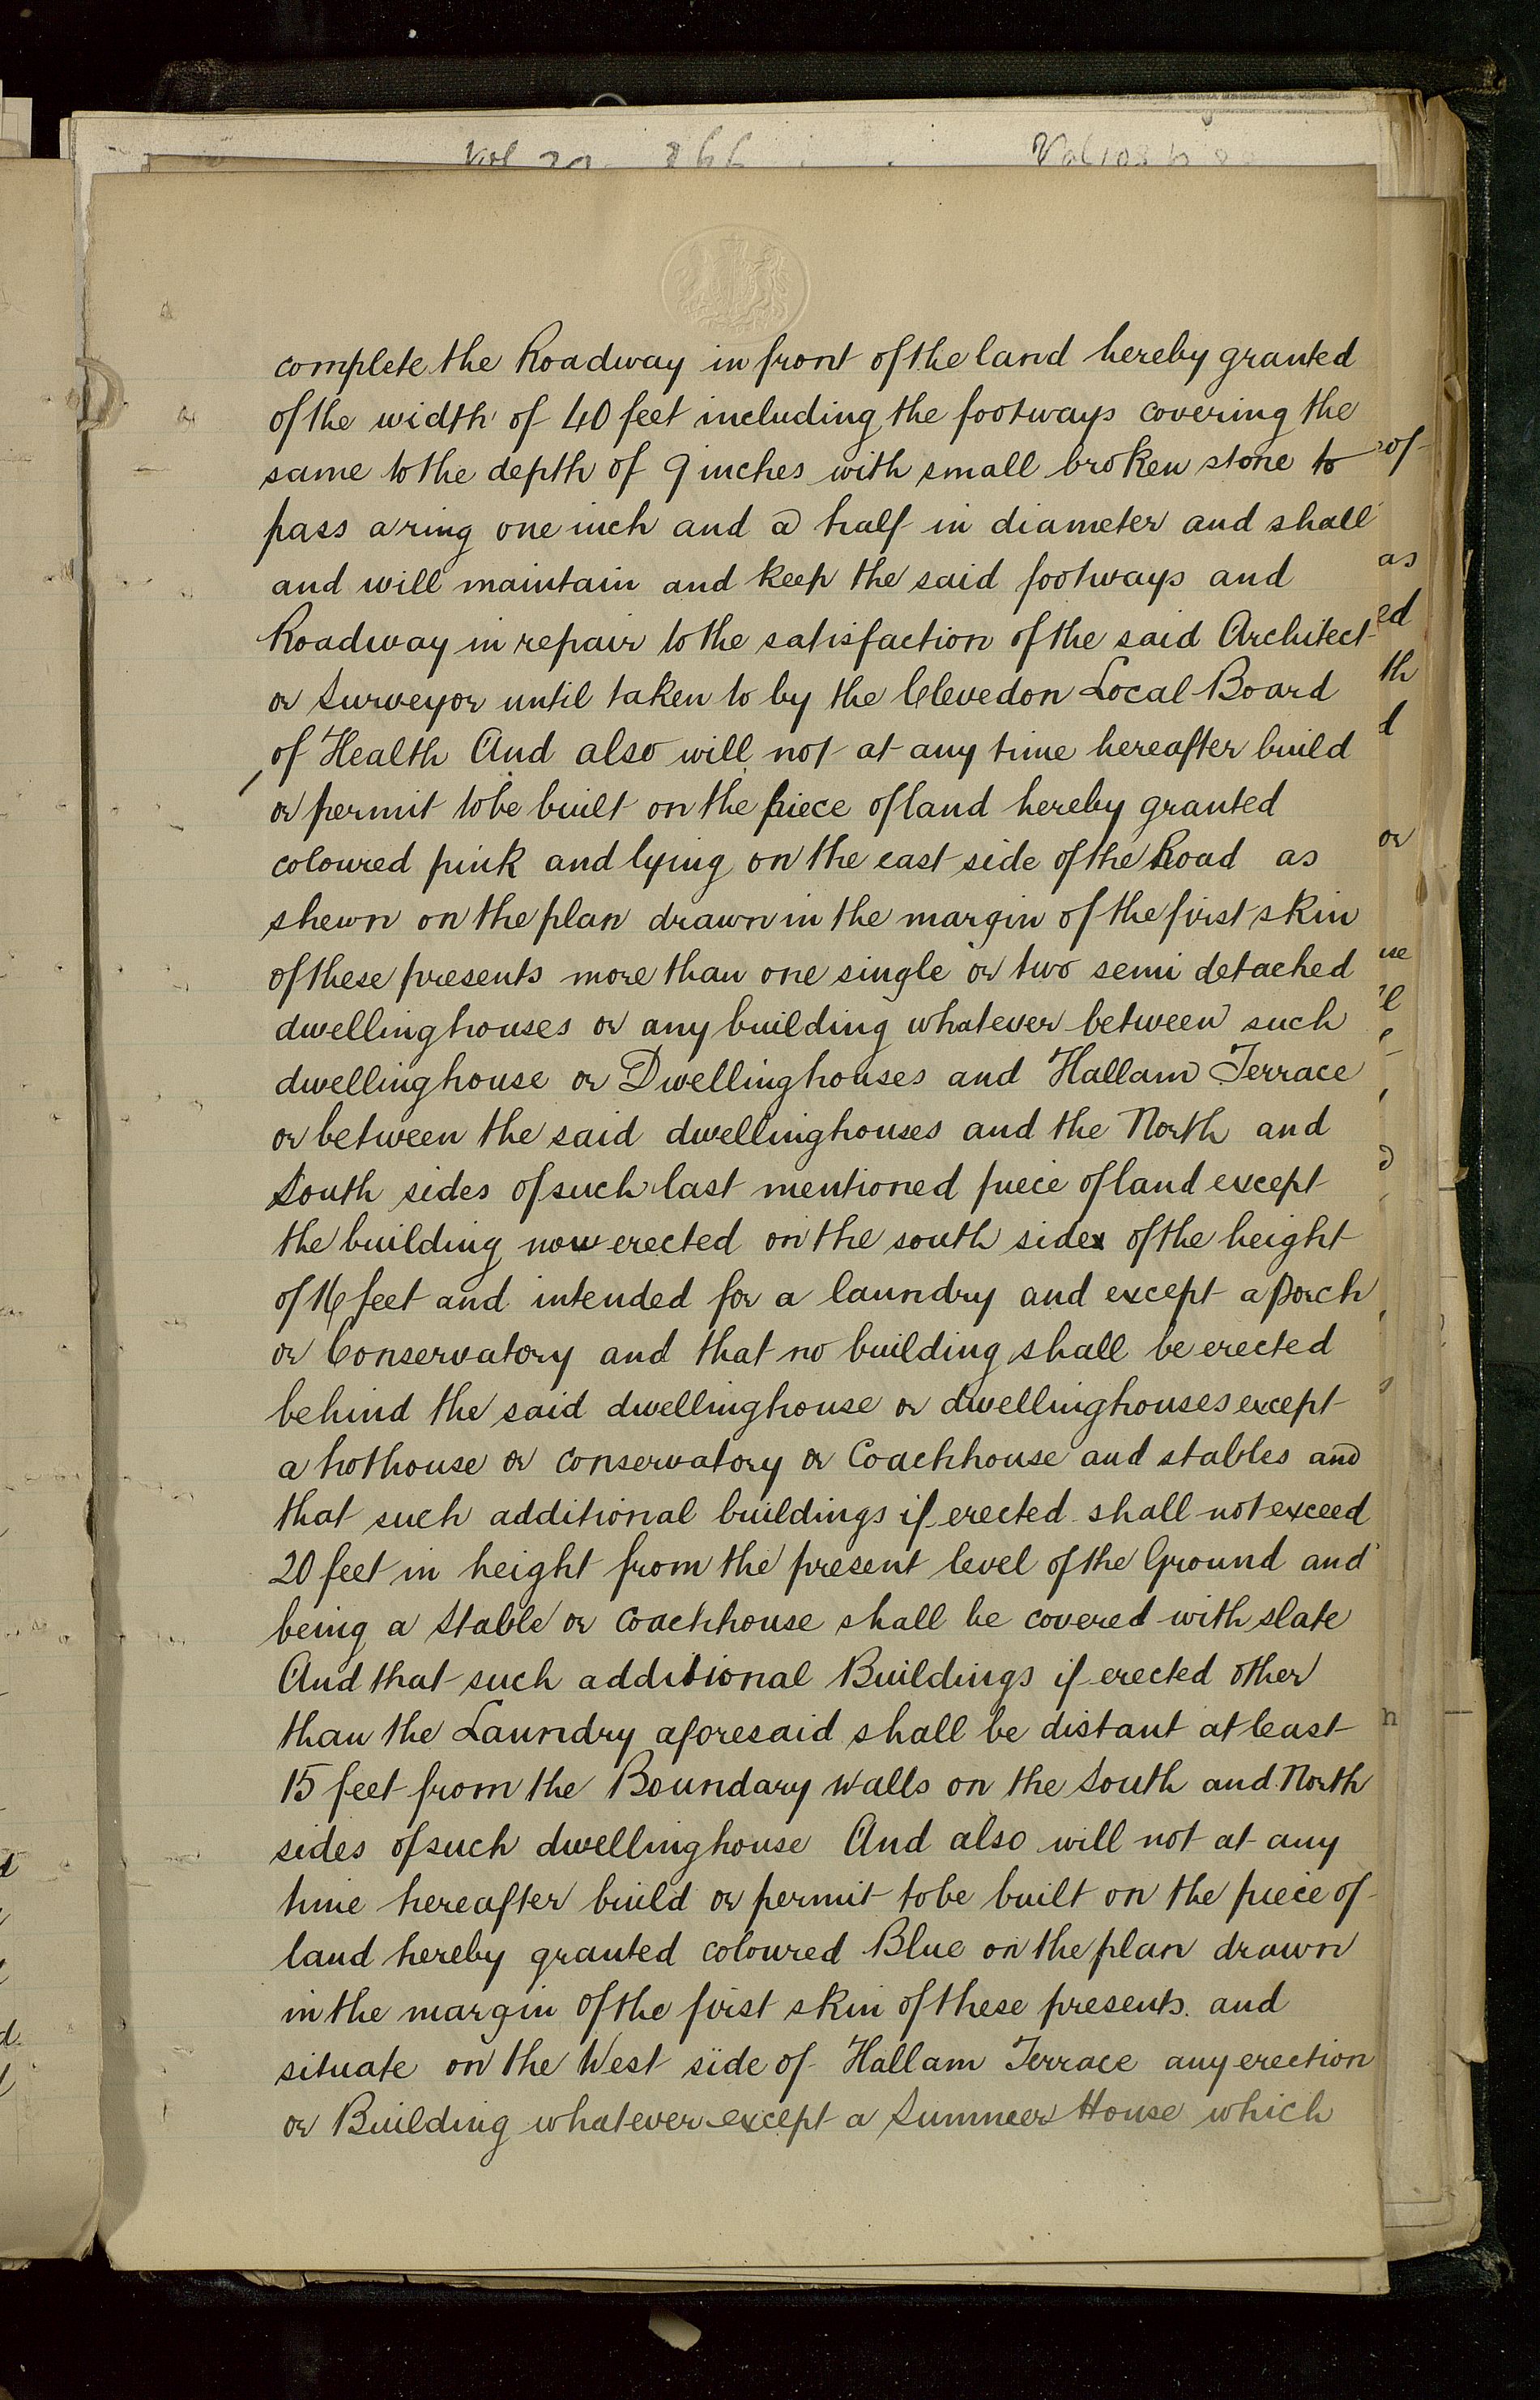 complete the Roadway in front of the land hereby granted
of the width of 40 feet including the footways covering the
same to the depth of 9 inches with small broken stone to
pass a ring one inch and a half in diameter and shall
and will maintain and keep the said footways and
Roadway in repair to the satisfaction of the said Architect
or Surveyor until taken to by the Clevedon Local Board
of Health And also will not at any time hereafter build
or permit to be built on the piece of land hereby granted
coloured pink and lying on the east side of the Road as
shewn on the plan drawn in the margin of the first skin
of these presents more than one single or two semi detached
dwellinghouses or any building whatever between such
dwellinghouse or Dwellinghouses and Hallam Terrace
or between the said dwellinghouses and the North and
South sides of such last mentioned piece of land except
the building now erected on the south side of the height
of 16 feet and intended for a laundry and except a porch
or Conservatory and that no building shall be erected
behind the said dwellinghouse or dwellinghouses except
a hothouse or conservatory or Coachhouse and stables and
that such additional buildings if erected shall not exceed
20 feet in height from the present level of the Ground and
being a Stable or coachhouse shall be covered with slate
And that such additional Buildings if erected other
than the Laundry aforesaid shall be distant at least
15 feet from the Boundary Walls on the South and North
sides of such dwellinghouse And also will not at any
time hereafter build or permit to be built on the piece of
land hereby granted coloured Blue on the plan drawn
in the margin of the first skin of these presents. and
situate on the West side of Hallam Terrace any erection
or Building whatever except a Summer House which